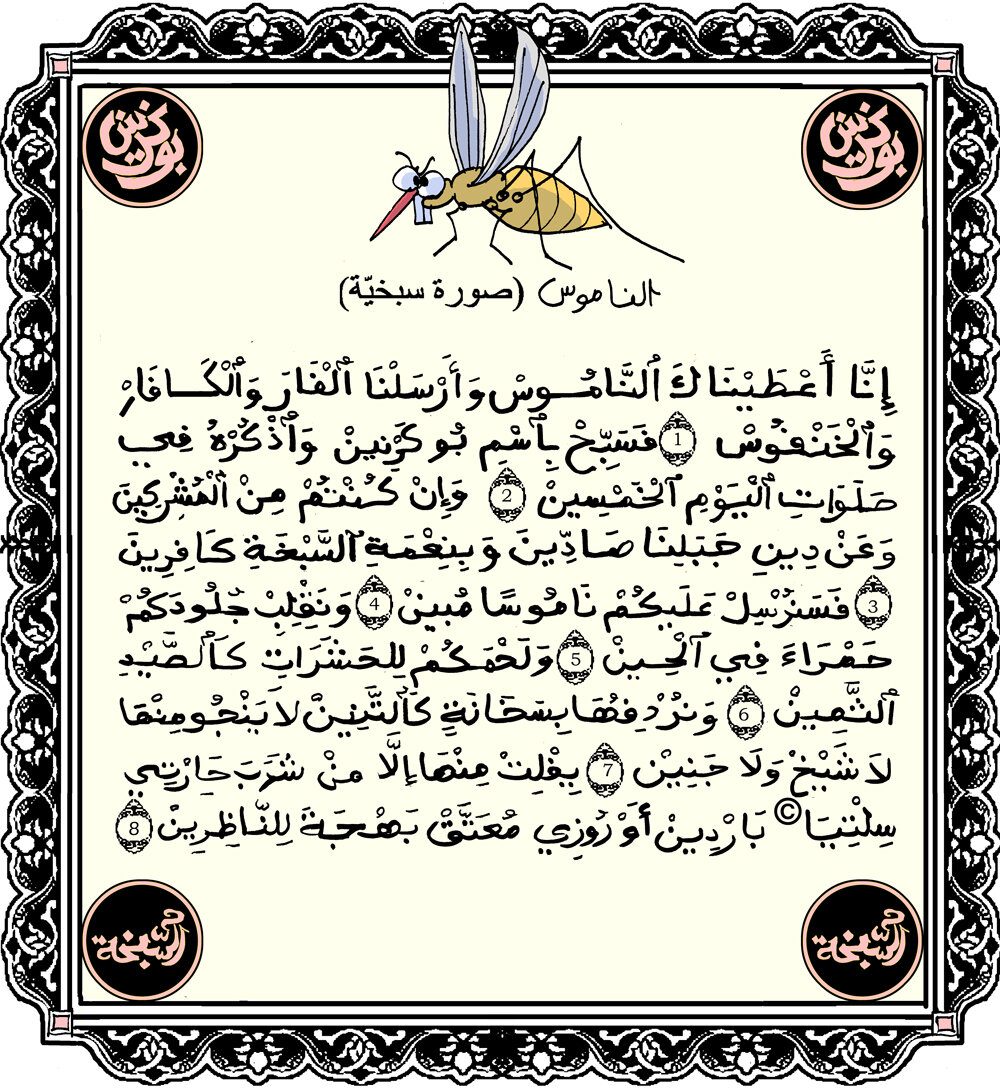 بوكرنين
بوكرنين
الناموس (صورة سبخيّة)
إِنَّا أَعْطَيْنَاكَ ٱلنَّامُوسْ وَأَرْسَلْنَا ٱلْفَارَ وَٱلْكَافَارْ
وَٱلْخَنْفُوسْ 1 فَسَبِّحْ بِٱسْمِ بُوكَرْنِينْ وَٱذْكُرْهُ فِي
صَلَوَاتِ ٱلْيَوْمِ ٱلْخَمْسِينْ 2 وَإِنْ كُنْتُمْ مِنْ ٱلْمُشْرِكِينَ
وَعَنْ دِينِ جَبَلِنَا صَادِّينَ وَبِنِعْمَةِ ٱلسَّبْخَةِ كَافِرِينَ
3 فَسَنُرْسِلْ عَلَيكُمْ نَامُوسًا مُبِينْ 4 وَنَقْلِبْ جُلُودَكُمْ
حَمْرَاءَ فِي ٱلْحِينْ 5 وَلَحْمَكُمْ لِلحَشَرَاتِ كَٱلصَّيْدِ
ٱلثَّمِينْ 6 وَنُرْدِفُهَا بِسَخَانَةٍ كَٱلتِّنِينْ لَا يَنْجُو مِنْهَا
لَا شَيْخْ وَلَا جَنِينْ 7 يِفْلِتْ مِنْهَا إلَّا مَنْ شَرَبَ حَارْتِي
سِلْتِيَا© بَارْدِينْ أَوْ رُوزِي مُعَتَّقْ بَهْجَةً لِلنَّاظِرِينْ 8
السّبخة
السّبخة